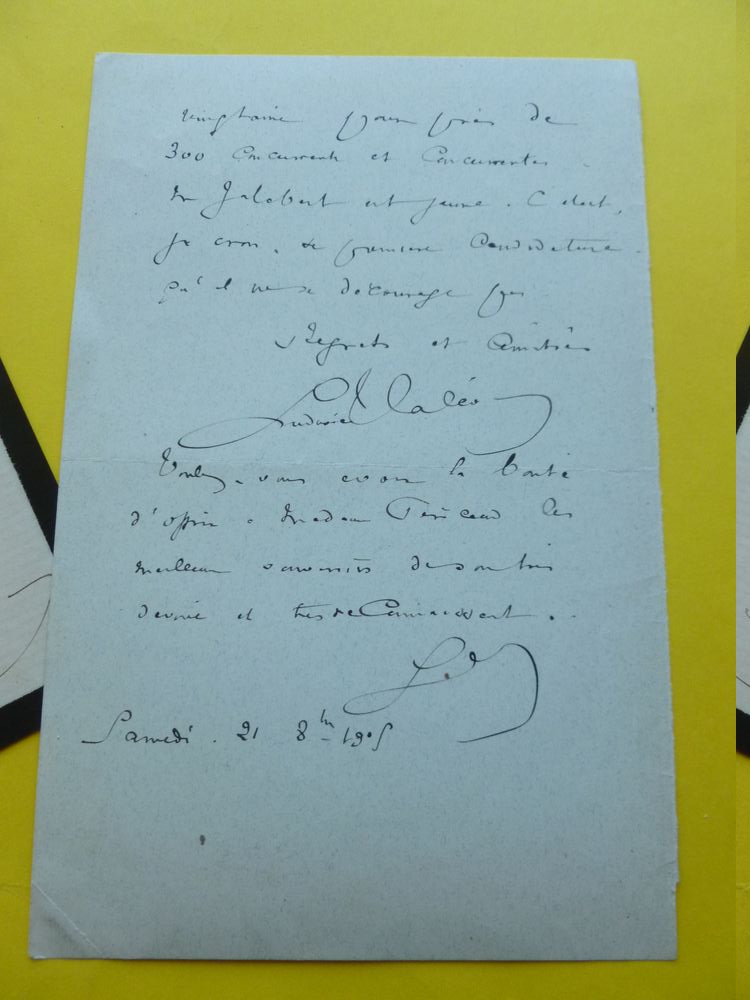 vingtaine pour près de
300 concurrents et concurrentes.
Mr Jalabert est jeune. C'était,
je crois, sa première candidature.
qu'il ne se décourage pas
Regrets et amitiés
Ludovic Halévy
Voulez-vous avoir la bonté
d'offrir à Madame les
meilleurs souvenirs de son très
dévoué et très reconnaissant.
L. H
Samedi. 21 8bre 1905